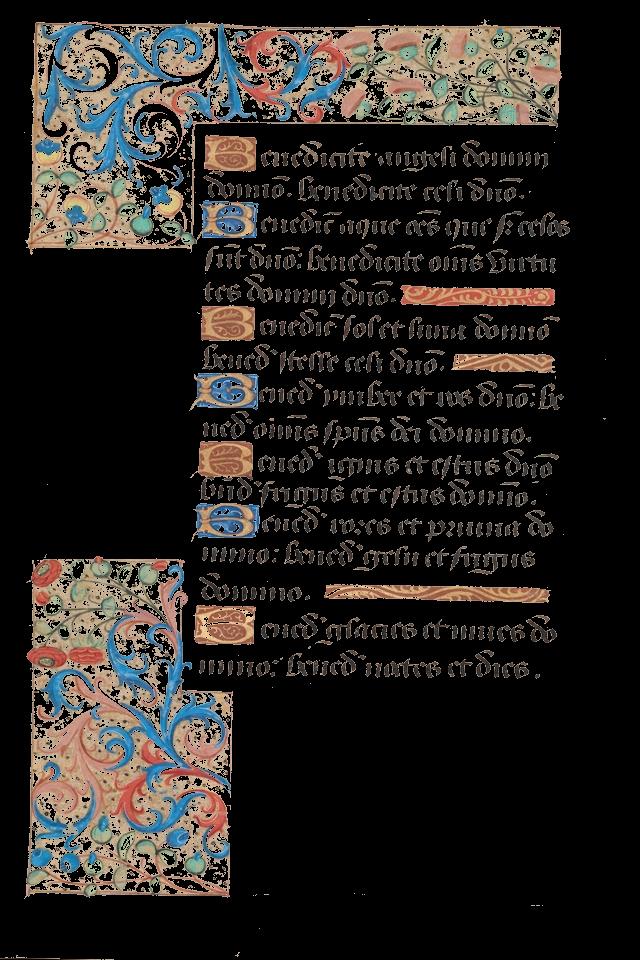 Benedicite angeli domini
domino. benedicite celi dño.
Benedic̃ aque oẽs que sr̃ celos
sũt dño: benedicite om̃s virtu
tes domini dño.
Benedic̃ sol et luna domino
bened' stelle celi dño.
Bened' ymber et ros dño: be
ned' oim̃s sp̃us dei domino.
Bened' ignis et estus dño
bñd' frigus et estus domino.
Bened' rores et pruina do
mino: bened' gelu et frigus
domino.
Bened' glacies et niues do
mino: bened' noctes et dies.